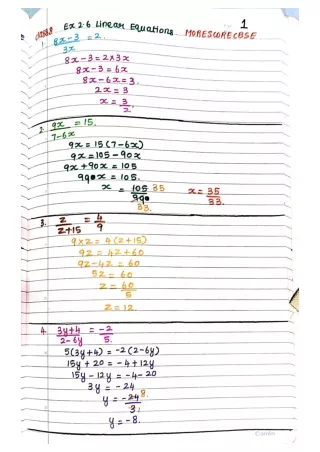 CLASS 8 Ex 2.6 Linear Equations. MORESCORECBSE 1
1. 8x-3 / 3x = 2.
8x-3 = 2×3x
8x-3 = 6x
8x-6x = 3.
2x = 3
x = 3/2.
2. 9x / 7-6x = 15.
9x = 15(7-6x)
9x = 105-90x
9x+90x = 105
99x = 105.
x = 105 35 / 99 33. x = 35/33.
3. z / z+15 = 4/9
9×z = 4(z+15)
9z = 4z+60
9z-4z = 60
5z = 60
z = 60/5
z = 12.
4. 3y+4 / 2-6y = -2/5.
5(3y+4) = -2(2-6y)
15y+20 = -4+12y
15y-12y = -4-20
3y = -24
y = -24 8. / 3 1
y = -8.